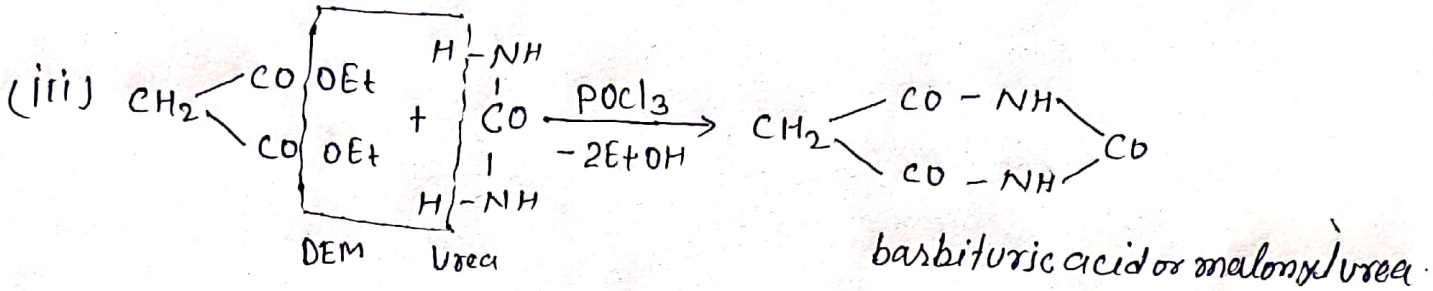 (iii) CH₂ CO OEt CO OEt + H-NH CO H-NH POCl₃ -2EtOH CH₂ CO - NH CO - NH CO
DEM Urea
barbituric acid or malonyl urea.